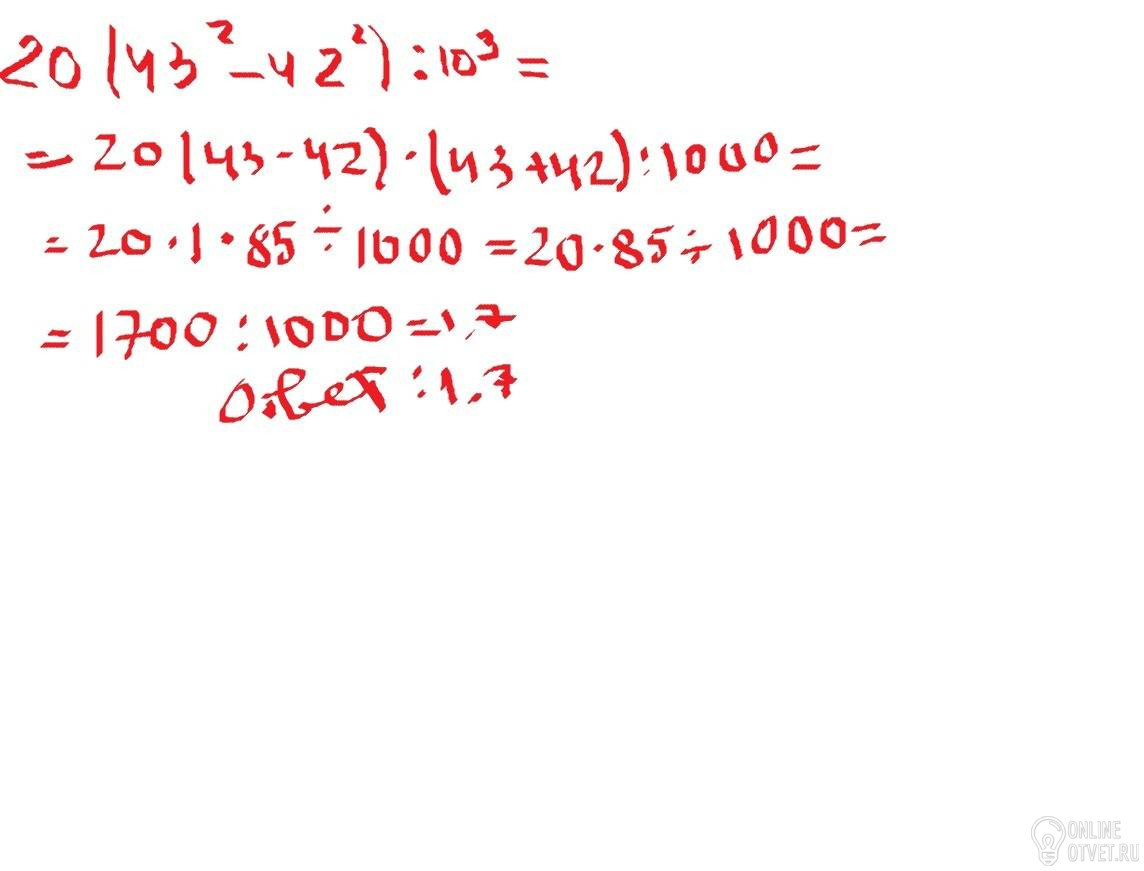 20(43²-42²):10³=
=20(43-42)·(43+42):1000=
=20·1·85÷1000=20·85÷1000=
=1700:1000=1,7
Ответ:1,7
ONLINE
OTVET.RU